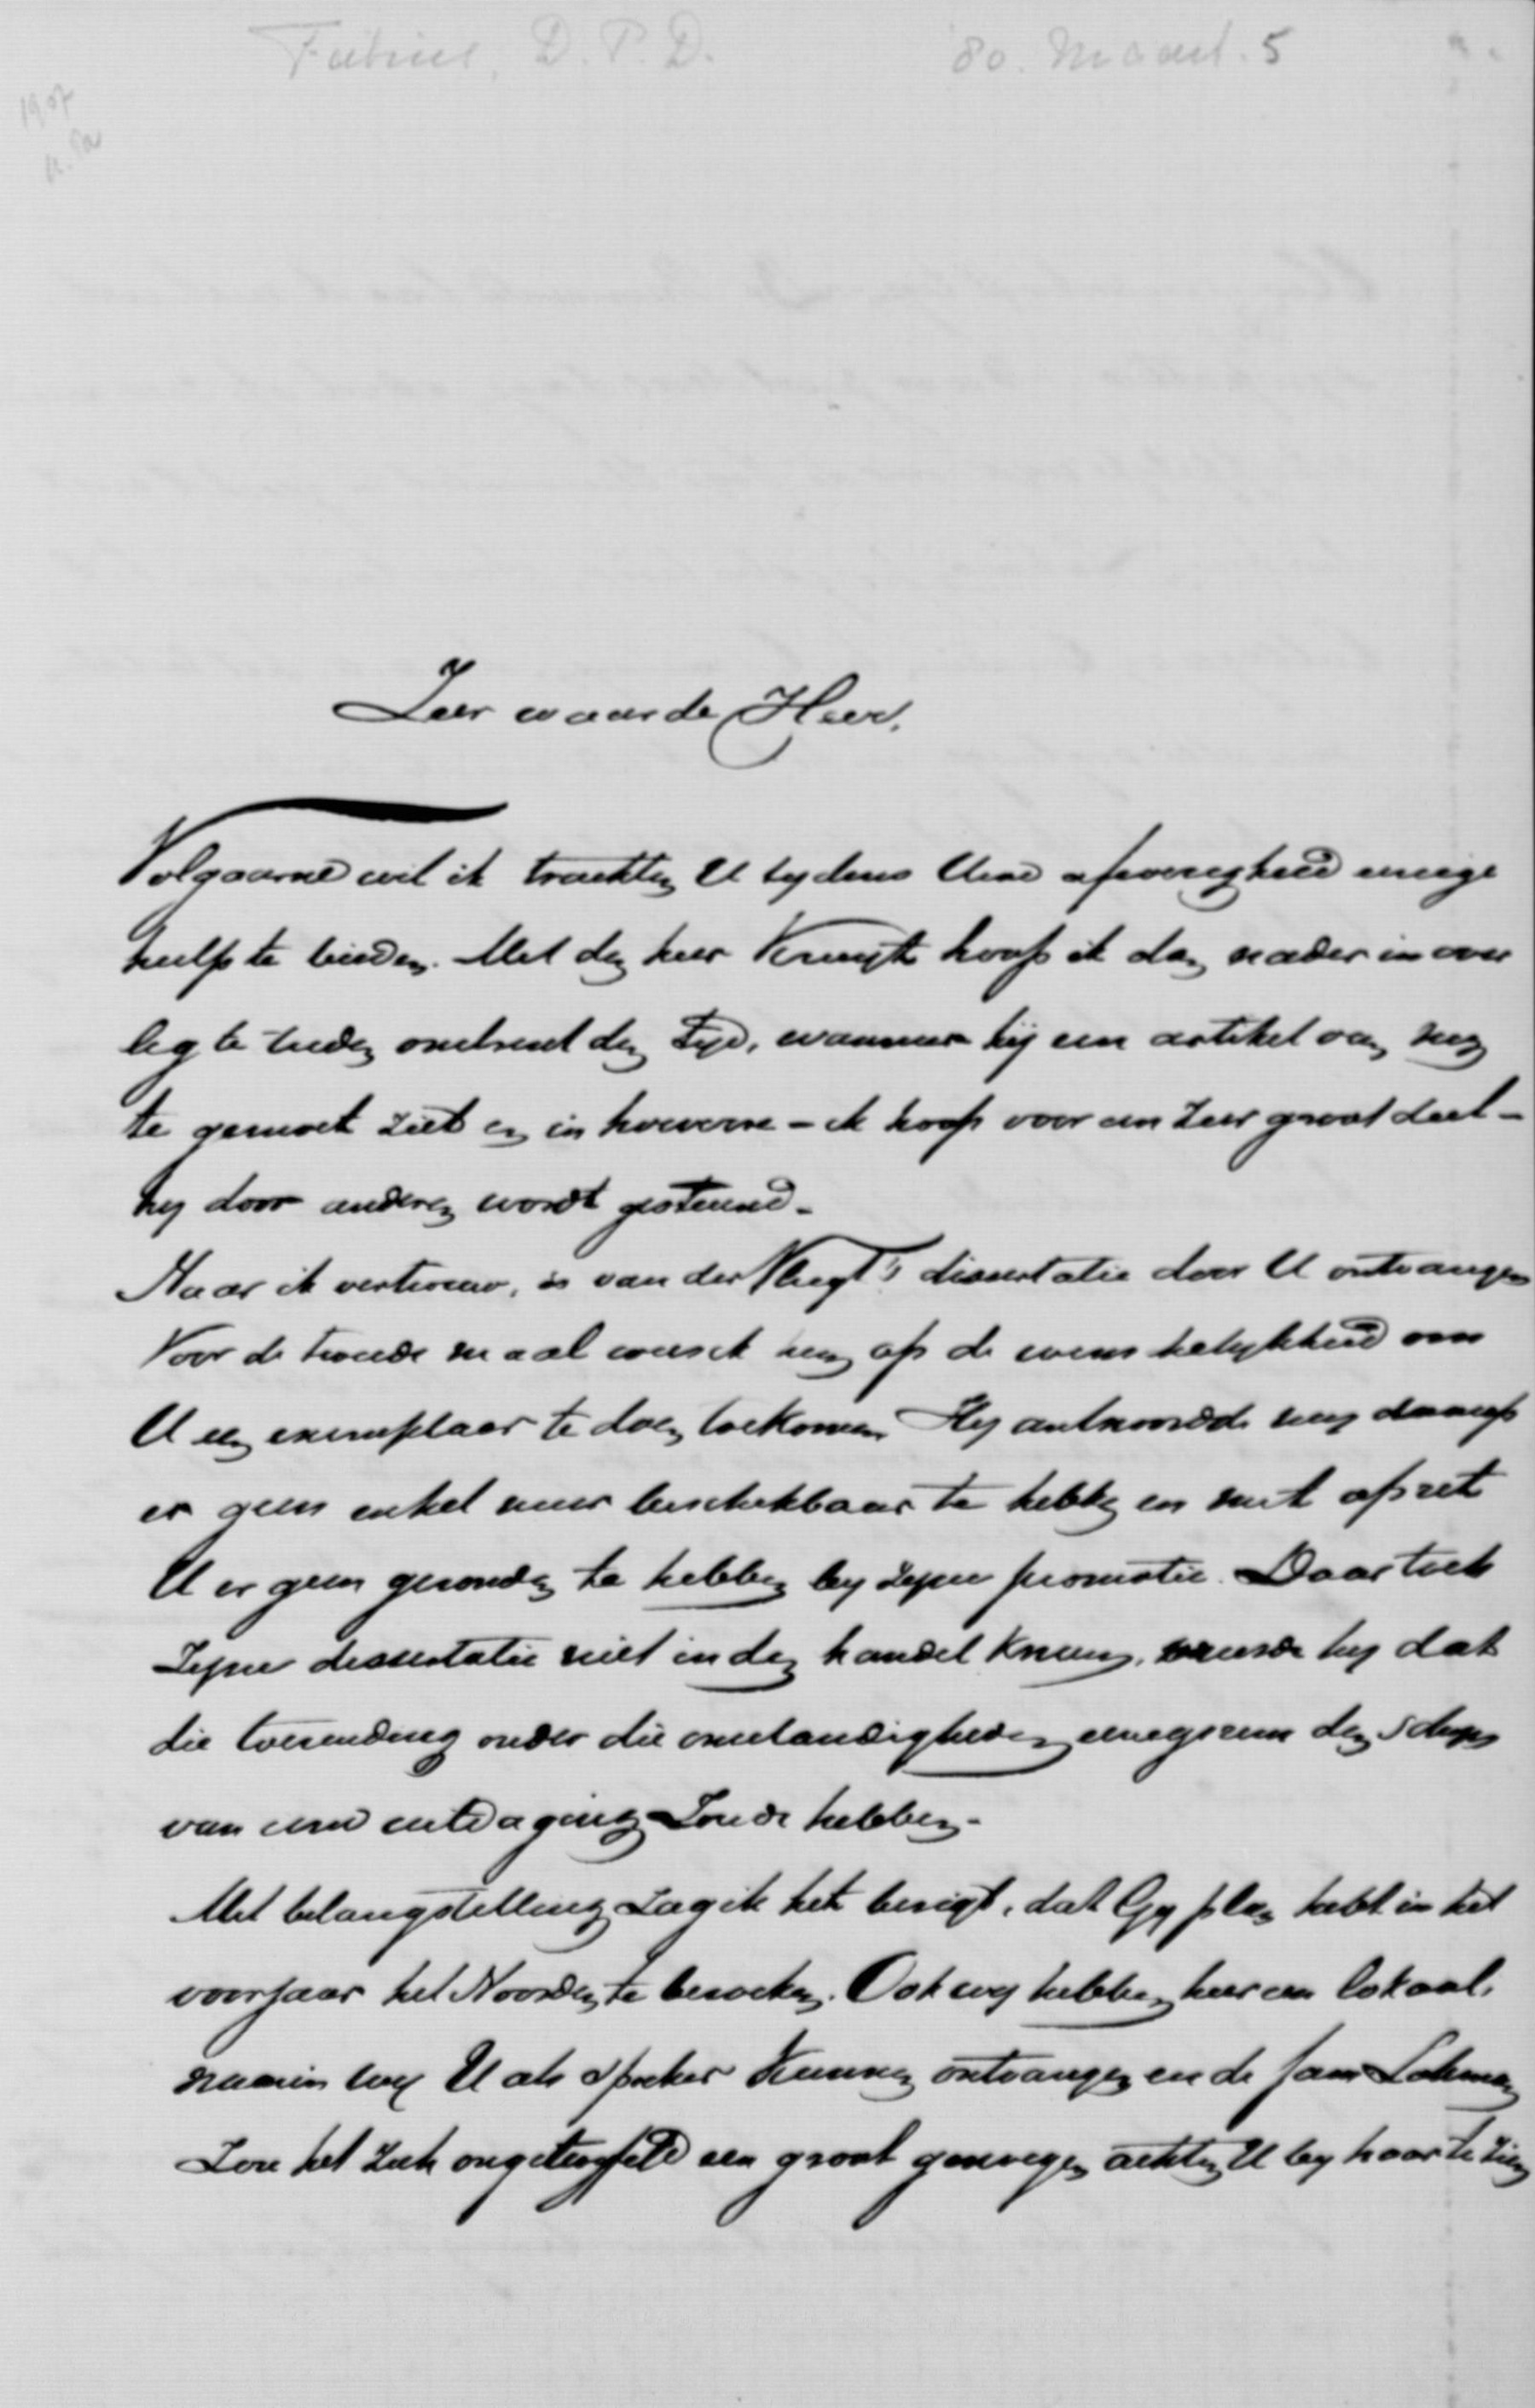 Fabius, D. P. D. '80. Maart. 5
1907
Zeer waarde Heer,
Volgaarne wil ik trachten U tydens Uwe afwezigheid eenige
hulp te bieden. Met den heer Kruyt hoop ik dan nader in over
leg te treden omtrent den tyd, wanneer hij een artikel van my
te gemoet ziet en in hoeverre - ik hoop voor een zeer groot deel -
hy door anderen wordt gesteund.
Naar ik vertrouw, is van der Vlugt's dissertatie door U ontvangen
Voor de tweede maal wees ik hem op de wenschelykheid om
U een exemplaar te doen toekomen. Hy antwoordde my daarop
er geen enkel meer beschikbaar te hebben en met opzet
U er geen gezonden te hebben by zyne promotie. Daar toch
zyne dissertatie niet in den handel kwam, meende hy dat
die toezending onder die omstandigheden eenigszins den schyn
van eene uitdaging zoude hebben.
Met belangstelling zag ik het berigt, dat Gy plan hebt in het
voorjaar het Noorden te bezoeken. Ook wy hebben hier een lokaal,
waarin wy U als spreker kunnen ontvangen en de fam Lohman
zou het zich ongetwyfeld een groot genoegen achten U by haar te zien